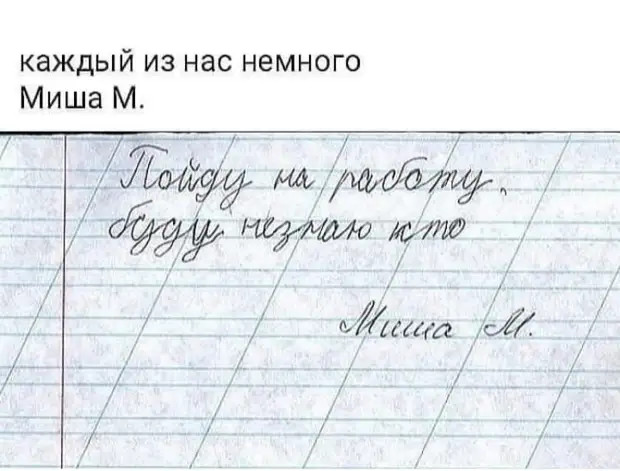 каждый из нас немного
Миша М.
Пойду на работу,
буду незнаю кто
Миша М.